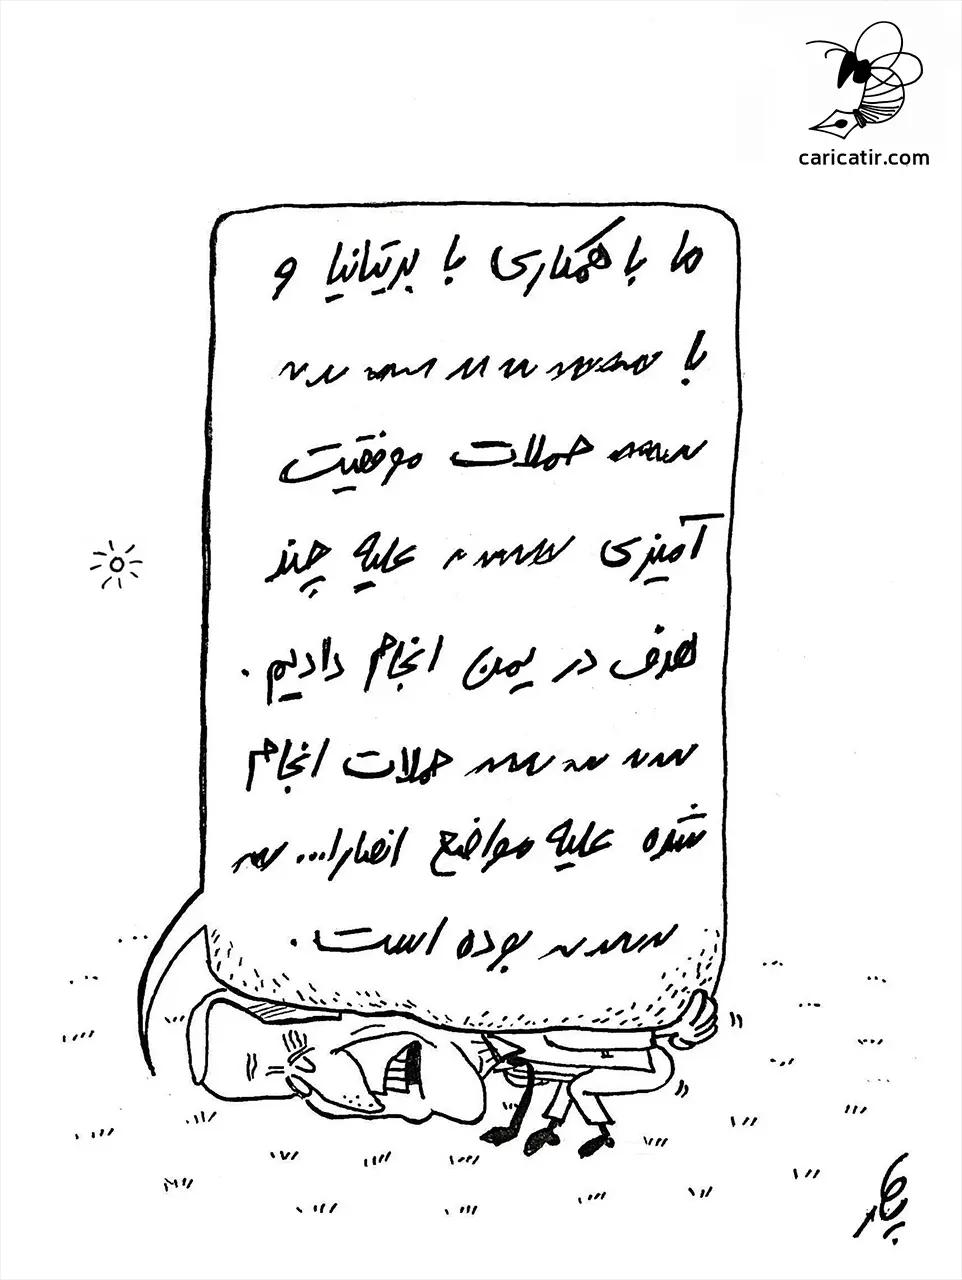 caricatir.com
ما با همکاری با بریتانیا و
با
حملات موفقیت
آمیزی علیه چند
هدف در یمن انجام دادیم.
حملات انجام
شده علیه مواضع انصارا...
بوده است.